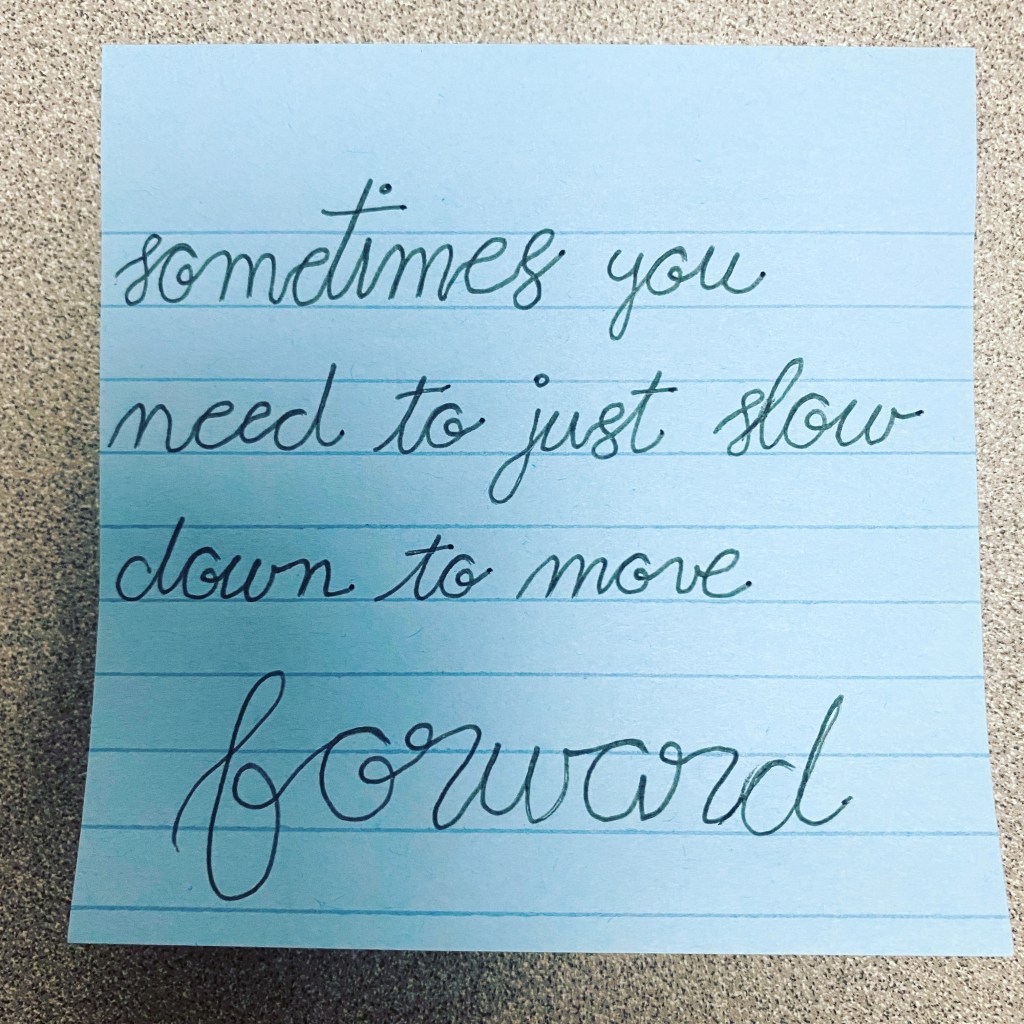 sometimes you
need to just slow
down to move
forward